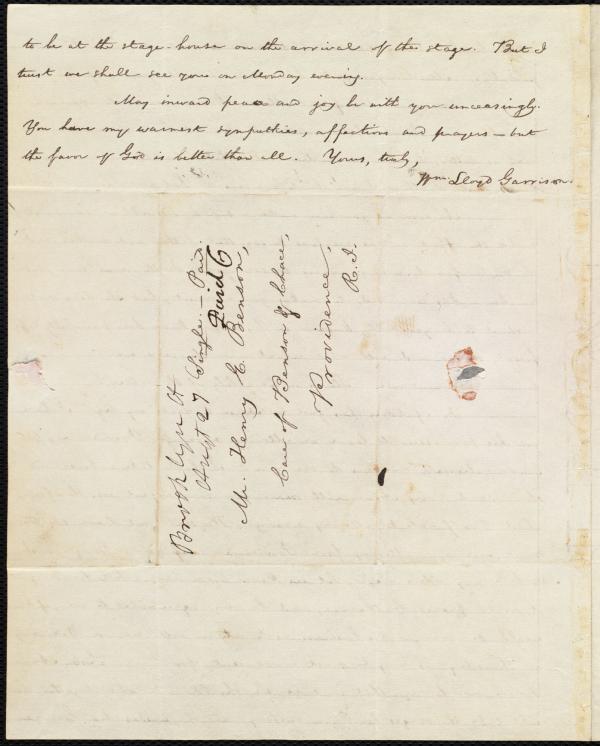 to be at the stage-house on the arrival of the stage. But I
trust we shall see you on Monday evening.
May inward peace and joy be with you unceasingly.
You have my warmest sympathies, affections and prayers — but
the favor of God is better than all. Yours, truly,
Wm. Lloyd Garrison.
Brooklyn Ct
Augst 27 Single. — Paid.
Paid 6
Mr. Henry E. Benson,
Care of Benson & Chace,
Providence,
R. I.